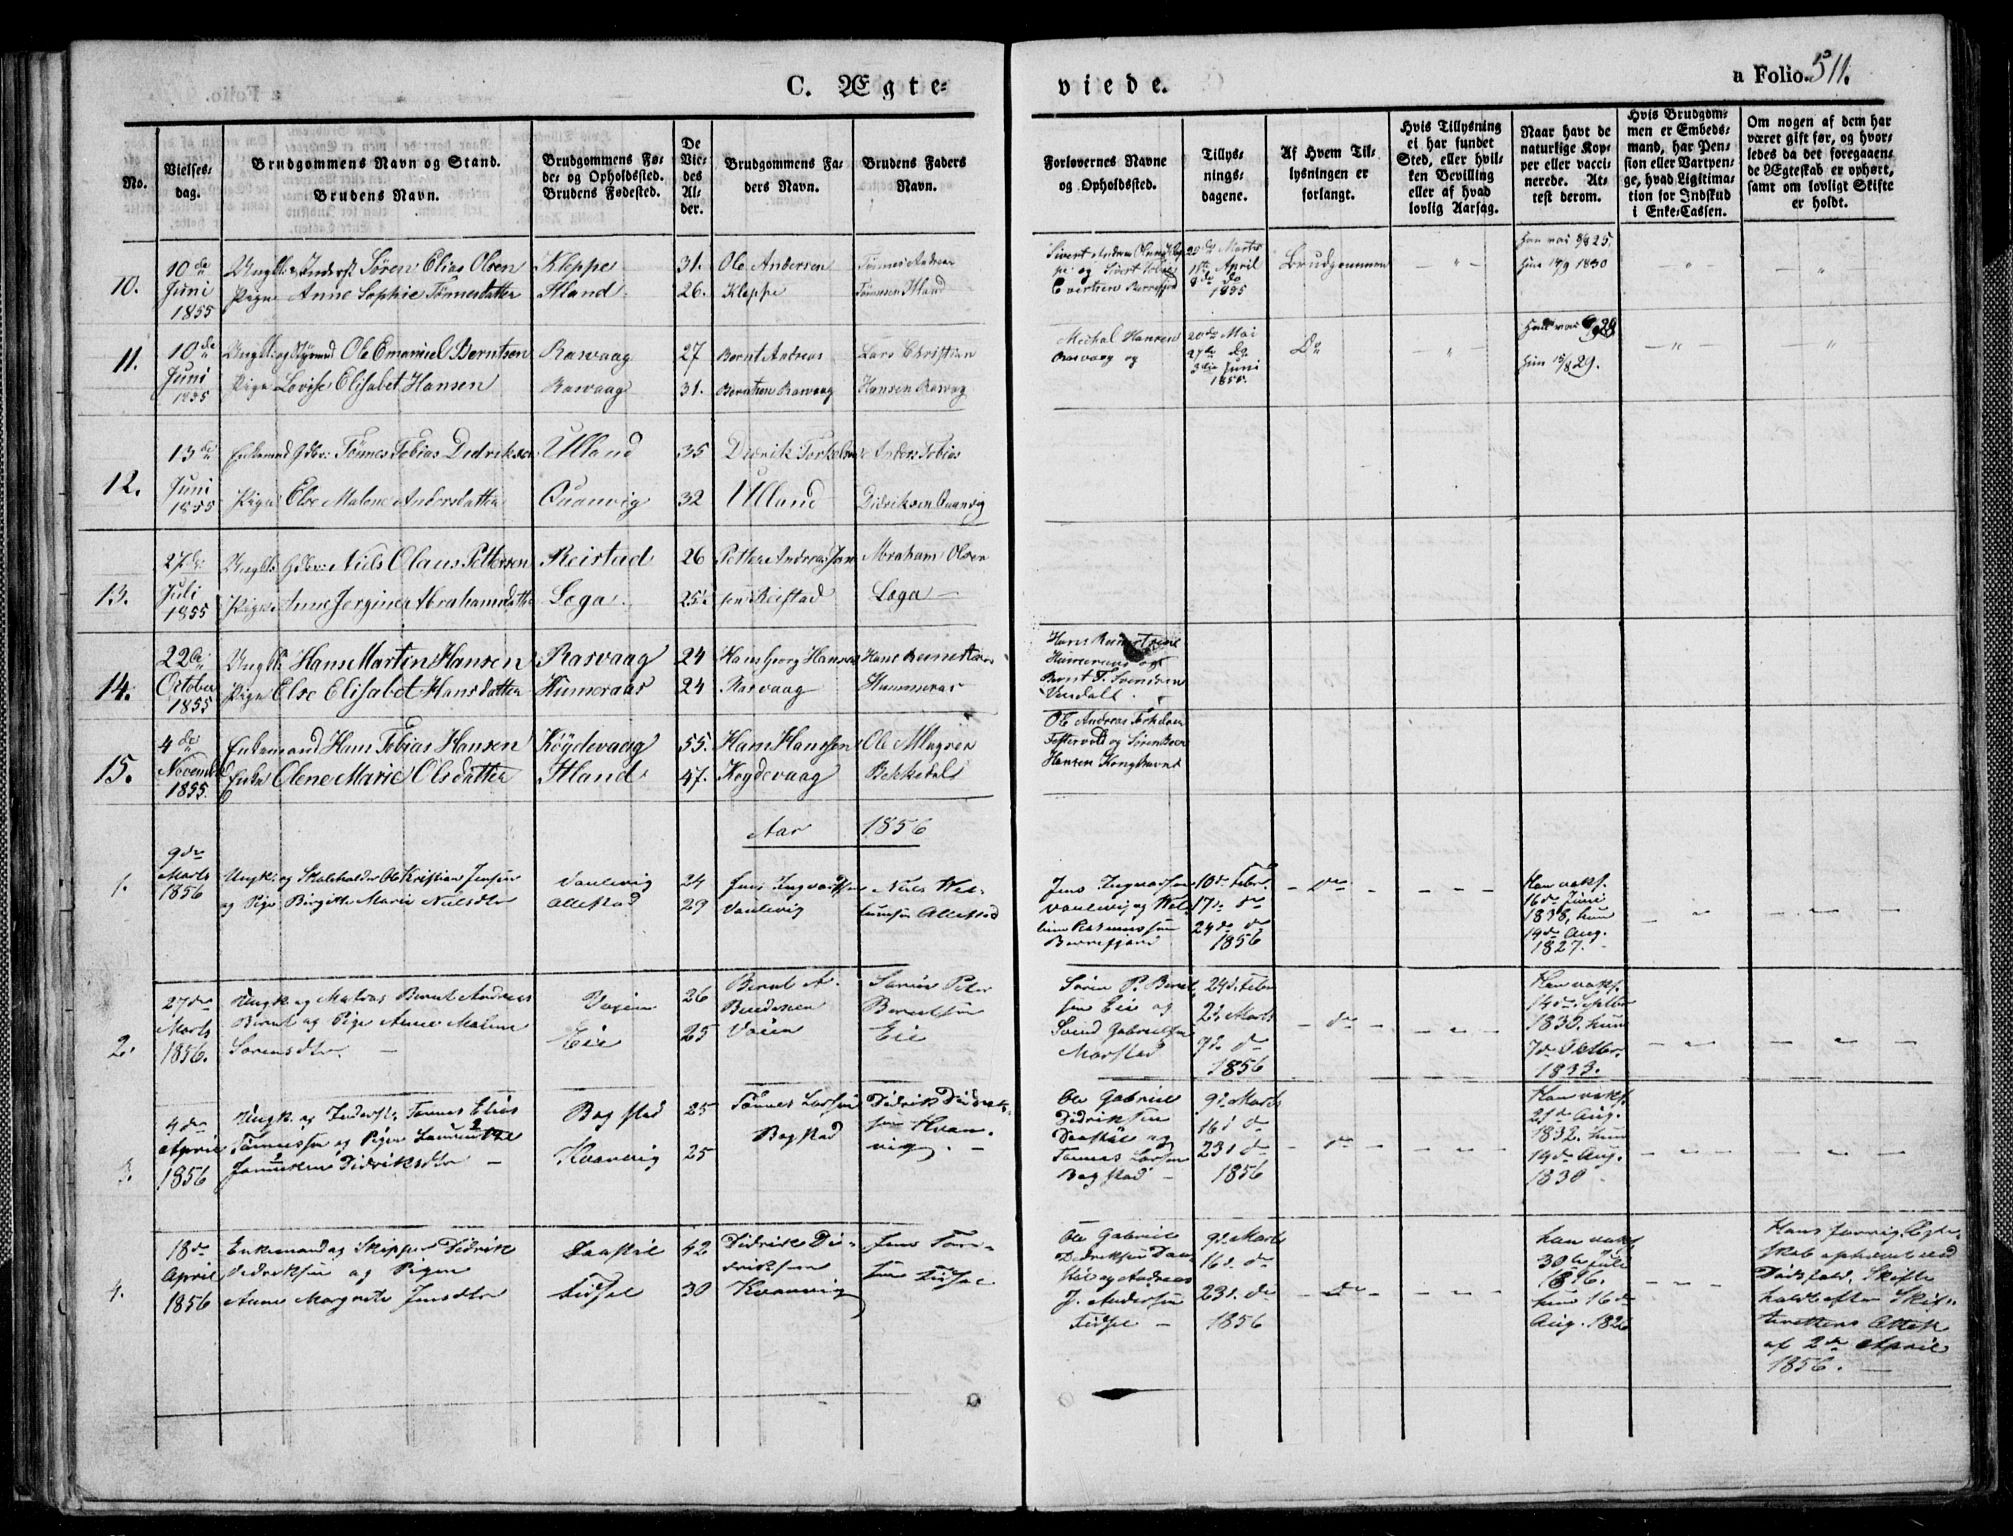 C. Ægte-
viede.
a Folio. 511.
No.
Vielses-
dag.
Brudgommens Navn og Stand.
Brudens Navn.
Brudgommens Fø-
de- og Opholdsted.
Brudens Fødested.
De
Vie-
des
Al-
der.
Brudgommens Fa-
ders Navn.
Brudens Faders
Navn.
Forlovernes Navne
og Opholdsted.
Tillys-
nings-
dagene.
Af Hvem Til-
lysningen er
forlangt.
Hvis Tillysning
ei har fundet
Sted, eller hvil-
ken Bevilling
eller af hvad
lovlig Aarsag.
Naar havt de
naturlige Kop-
per eller vacci-
nerede. At-
test derom.
Hvis Brudgom-
men er Embeds-
mand, har Pen-
sion eller Vartpen-
ge, hvad Legitima-
tion for Indskud
i Enke-Cassen.
Om nogen af dem har
været gift før, og hvor-
ledes da det foregaaen-
de Ægteskab er ophørt,
samt om lovligt Skifte
er holdt.
10.
10de
Juni
1855
Ungkl. Inderst Søren Elias Olsen
Pige Anne Sophie Tønnesdatter
Kleppe
Itland
31.
26.
Ole Andersen
Kleppe
Tønnes Andreas
Tønnesen Itland
Sivert Andreas Olsen Klep-
pe og Sivert Tobias
Evertsen Berrefjord
25de Marts
1ste April
8de do
1855
Brudgommen
Han vac 8/8 25
Hun 14/9 1830
11.
10de
Juni
1855
Ungkl. og Styrmd Ole Emanuel Berntsen
Pige Lovise Elisabet Hansen
Rasvaag
Rasvaag
27
31.
Bernt Andreas
Berntsen Rasvaag
Lars Christian
Hansen Rasvag
Michal Hansen
Rasvaag og
20de Mai
27de do
3die Juni
1855.
Do
Hun 15/8 29.
12.
13de
Juni
1855
Enkemand Gdbr: Tønnes Tobias Didriksen
Pige Else Malene Andersdatter
Ulland
Quanvig
35
32
Didrik Torkelsen
Ulland
Anders Tobias
Didriksen Quanvig
13.
27de
Juli
1855
Ungkl. Gdbr: Niels Olaus Pettersen
Pige Anne Jorgine Abrahamsdatter
Reistad
Loga
26
25½
Petter Andreas Jan-
sen Reistad
Abraham Olsen
Loga
14.
22de
October
1855
Ungkl. Hans Martin Hansen
Pige Else Elisabet Hansdatter
Rasvaag
Humeraas
24
24
Hans Georg Hansen
Rasvaag
Hans Reinertsen
Hummeras
Hans Reinertsen
Humeraas og
Bernt T. Svendsen
15.
4de
November
1855.
Enkemand Hans Tobias Hansen
Enke Olene Marie Olsdatter
Køydevaag
Itland
55.
47.
Hans Hanssen
Køydevaag
Ole Magner
Bekkedal
Ole Andreas Torkelsen
Festervold og Søren
Hansen Kongshavn
Aar 1856
1.
9de
Marts
1856
Ungk. og Skoleholder Ole Kristian Jensen
og Pige Birgitte Marie Nielsdtr
Vaulevig
Allestad
24
29
Jens Ingvardsen
Vaulevig
Niels Wel-
lumsen Allestad
Jens Ingvardsen
Vaulevig og Wel-
lum Rasmussen
Berrefjord
10de Febr.
17de do
24de do
1856
Do
Han vaks.
16de Juni
1838, hun
19de Aug.
1827.
2.
27de
Marts
1856.
Ungk. og Matros Bernt Andreas
Bernt og Pige Anne Malene
Sørensdtr.
Vøien
Eie
26
25
Bernt A.
Berntsen
Vøien
Søren Peter
Berntsen
Eie
Søren P. Bernt-
sen Eie og
Svend Gabrielsen
Marstad
24de Febr
2de Marts
9de do
1856
do
Han vaks.
14de Septbr
1830. hun
7de Octbr.
1833.
3.
4de
April
1856
Ungk. og Inderst: Tønnes Elias
Tønnessen og Pigen
Didriksdtr
Bagstad
Kvanvig
25
25
Tønnes Larsen
Bagstad
Didrik Didrik-
sen Kvan-
vig.
Ole Gabriel
Didriksen
Daastøl og
Tønnes Larsen
Bagstad
9de Marts
16de do
23de do
1856
do
Han vaks.
21de Aug.
1832. hun
19de Aug.
1830
4.
18de
April
1856
Enkemand og Skipper Didrik
Didriksen og Pigen
Anne Margrete Jensdtr
Daastøl
Fidsel
42
30
Didrik Di-
driksen
Kvanvig
Jens Tøn-
sen Fidsel
Ole Gabriel
Didriksen Daa-
støl og Andreas
J. Andersen
Fidsel
9de Marts
16de do
23de do
1856
Do
han vaks.
30te Juli
1816.
hun 16de
Aug. 1826
Hans forrige Ægte-
skab ophævet ved
Dødsfald, Skifte
holdt efter Skif-
terettens Attest
af 2den April
1856.